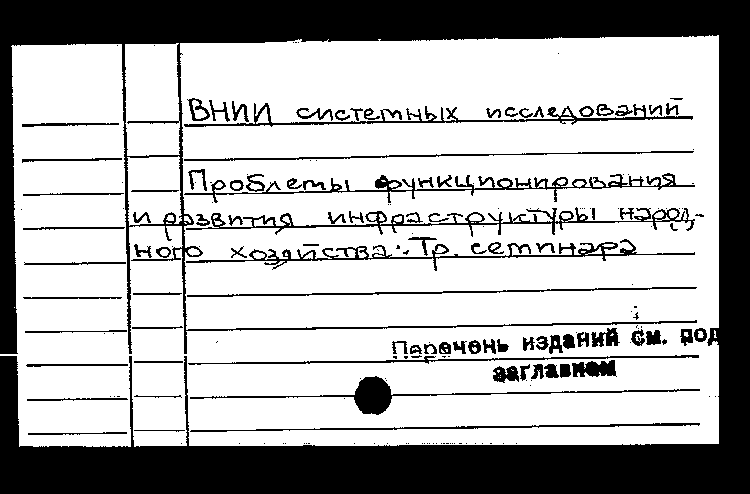 ВНИИ системных исследований
Проблемы функционирования
и развития инфраструктуры народ-
ного хозяйства: Тр. семинара
Перечень изданий см. под
заглавием